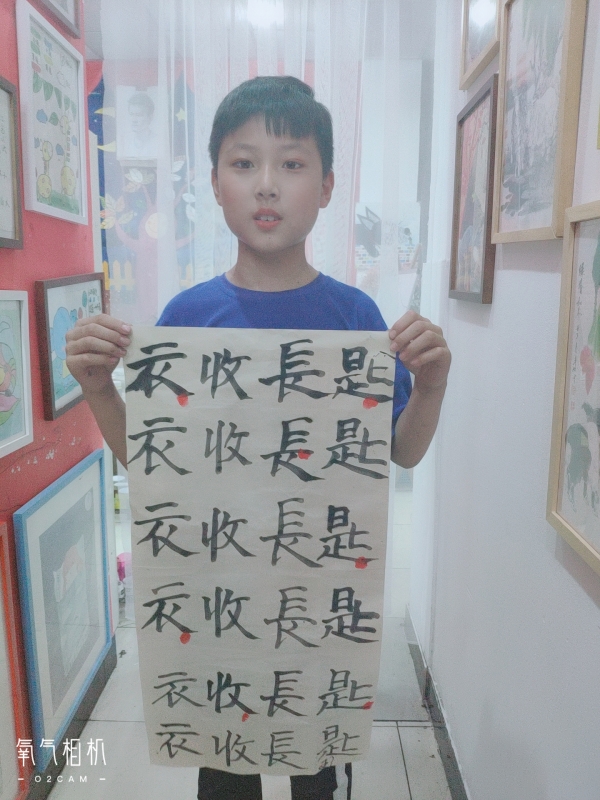 衣收長匙
衣收長匙
衣收長匙
衣收長匙
衣收長匙
衣收長匙
氧气相机
O2CAM